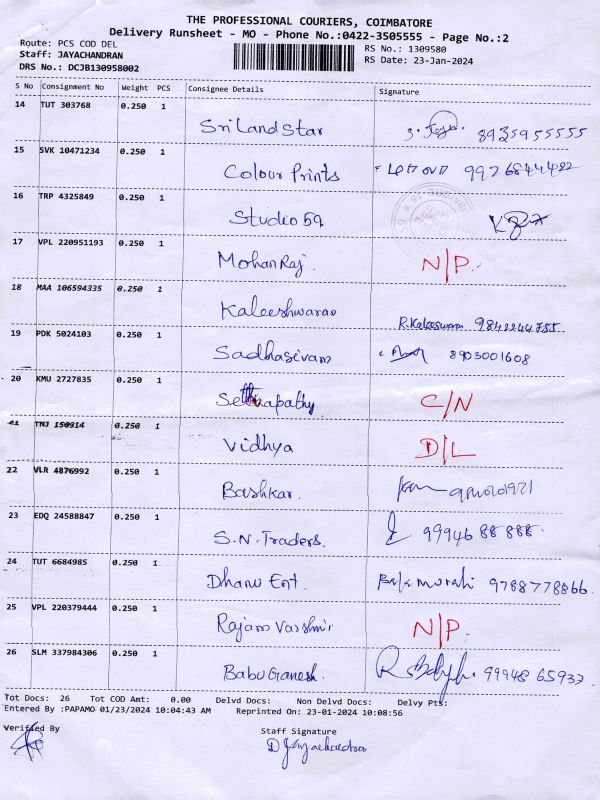 THE PROFESSIONAL COURIERS, COIMBATORE
Delivery Runsheet - MO - Phone No.:0422-3505555 - Page No.:2
Route: PCS COD DEL
Staff: JAYACHANDRAN
DRS No.: DCJB130958002
RS No.: 1309580
RS Date: 23-Jan-2024
S No Consignment No Weight PCS Consignee Details Signature
14 TUT 303768 0.250 1
Sri Land Star 8935955555
15 SVK 10471234 0.250 1
Colour Prints
16 TRP 4325849 0.250 1
Studio 59
17 VPL 220951193 0.250 1
Mohan Raj. N/P.
18 MAA 106594335 0.250 1
Kaleeshwaran R.Kaleeswaran
19 PDK 5024103 0.250 1
Sadhasivam 8903001608
20 KMU 2727835 0.250 1
Sethupathy C/N
21 TNJ 150914 0.250 1
Vidhya D/L
22 VLR 4876992 0.250 1
Bashkar.
23 EDQ 24588847 0.250 1
S.N. Traders. 99946 88 888.
24 TUT 6684985 0.250 1
Dhanu Ent. Balamurali 9788778866.
25 VPL 220379444 0.250 1
Rajam Varshni N/P.
26 SLM 337984306 0.250 1
Babu Ganesh. 99948 65933
Tot Docs: 26 Tot COD Amt: 0.00 Delvd Docs: Non Delvd Docs: Delvy Pts:
Entered By :PAPAMO 01/23/2024 10:04:43 AM Reprinted On: 23-01-2024 10:08:56
Verified By Staff Signature
D Jayachandran